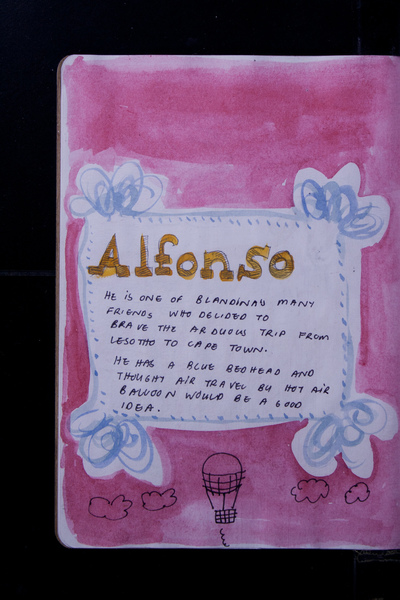 Alfonso
HE IS ONE OF BLANDINAS MANY
FRIENDS WHO DECIDED TO
BRAVE THE ARDUOUS TRIP FROM
LESOTHO TO CAPE TOWN.
HE HAS A BLUE BEDHEAD AND
THOUGHT AIR TRAVEL BY HOT AIR
BALLOON WOULD BE A GOOD
IDEA.